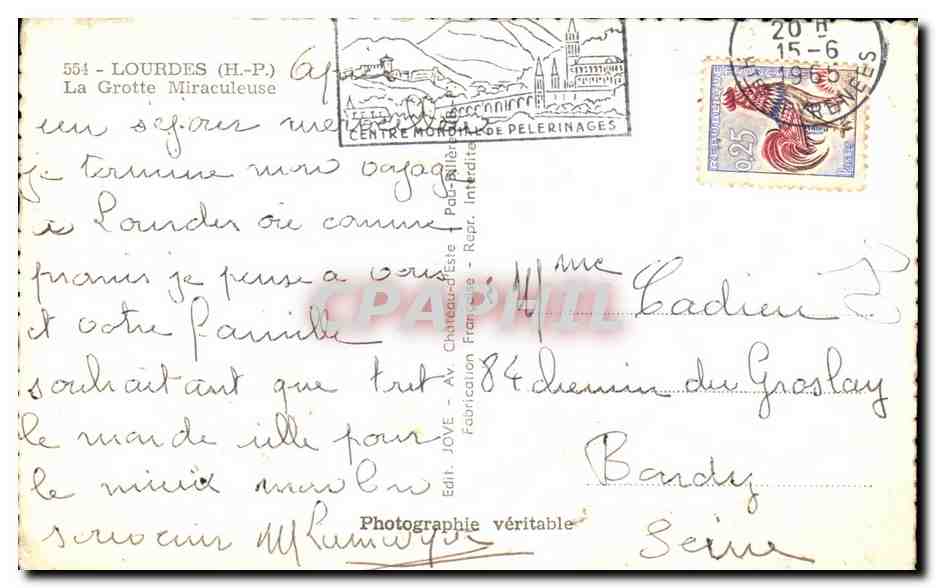 554 - LOURDES (H.-P.)
La Grotte Miraculeuse
un sejour
je termine mon voyage
a Lourdes où comme
promis je pense a vous
et votre famille
souhaitant que tout
le monde aille pour
le mieux mon
souvenir
Photographie véritable
Edit. JOVE - Av. Château-d'Este - Pau-Billère
Fabrication Française - Repr. Interdite
CENTRE MONDIAL DE PELERINAGES
20 H
15-6
1965
REPUBLIQUE FRANCAISE
0,25
CPAPHIL
Mme Cadieu
84 chemin du Groslay
Bondy
Seine